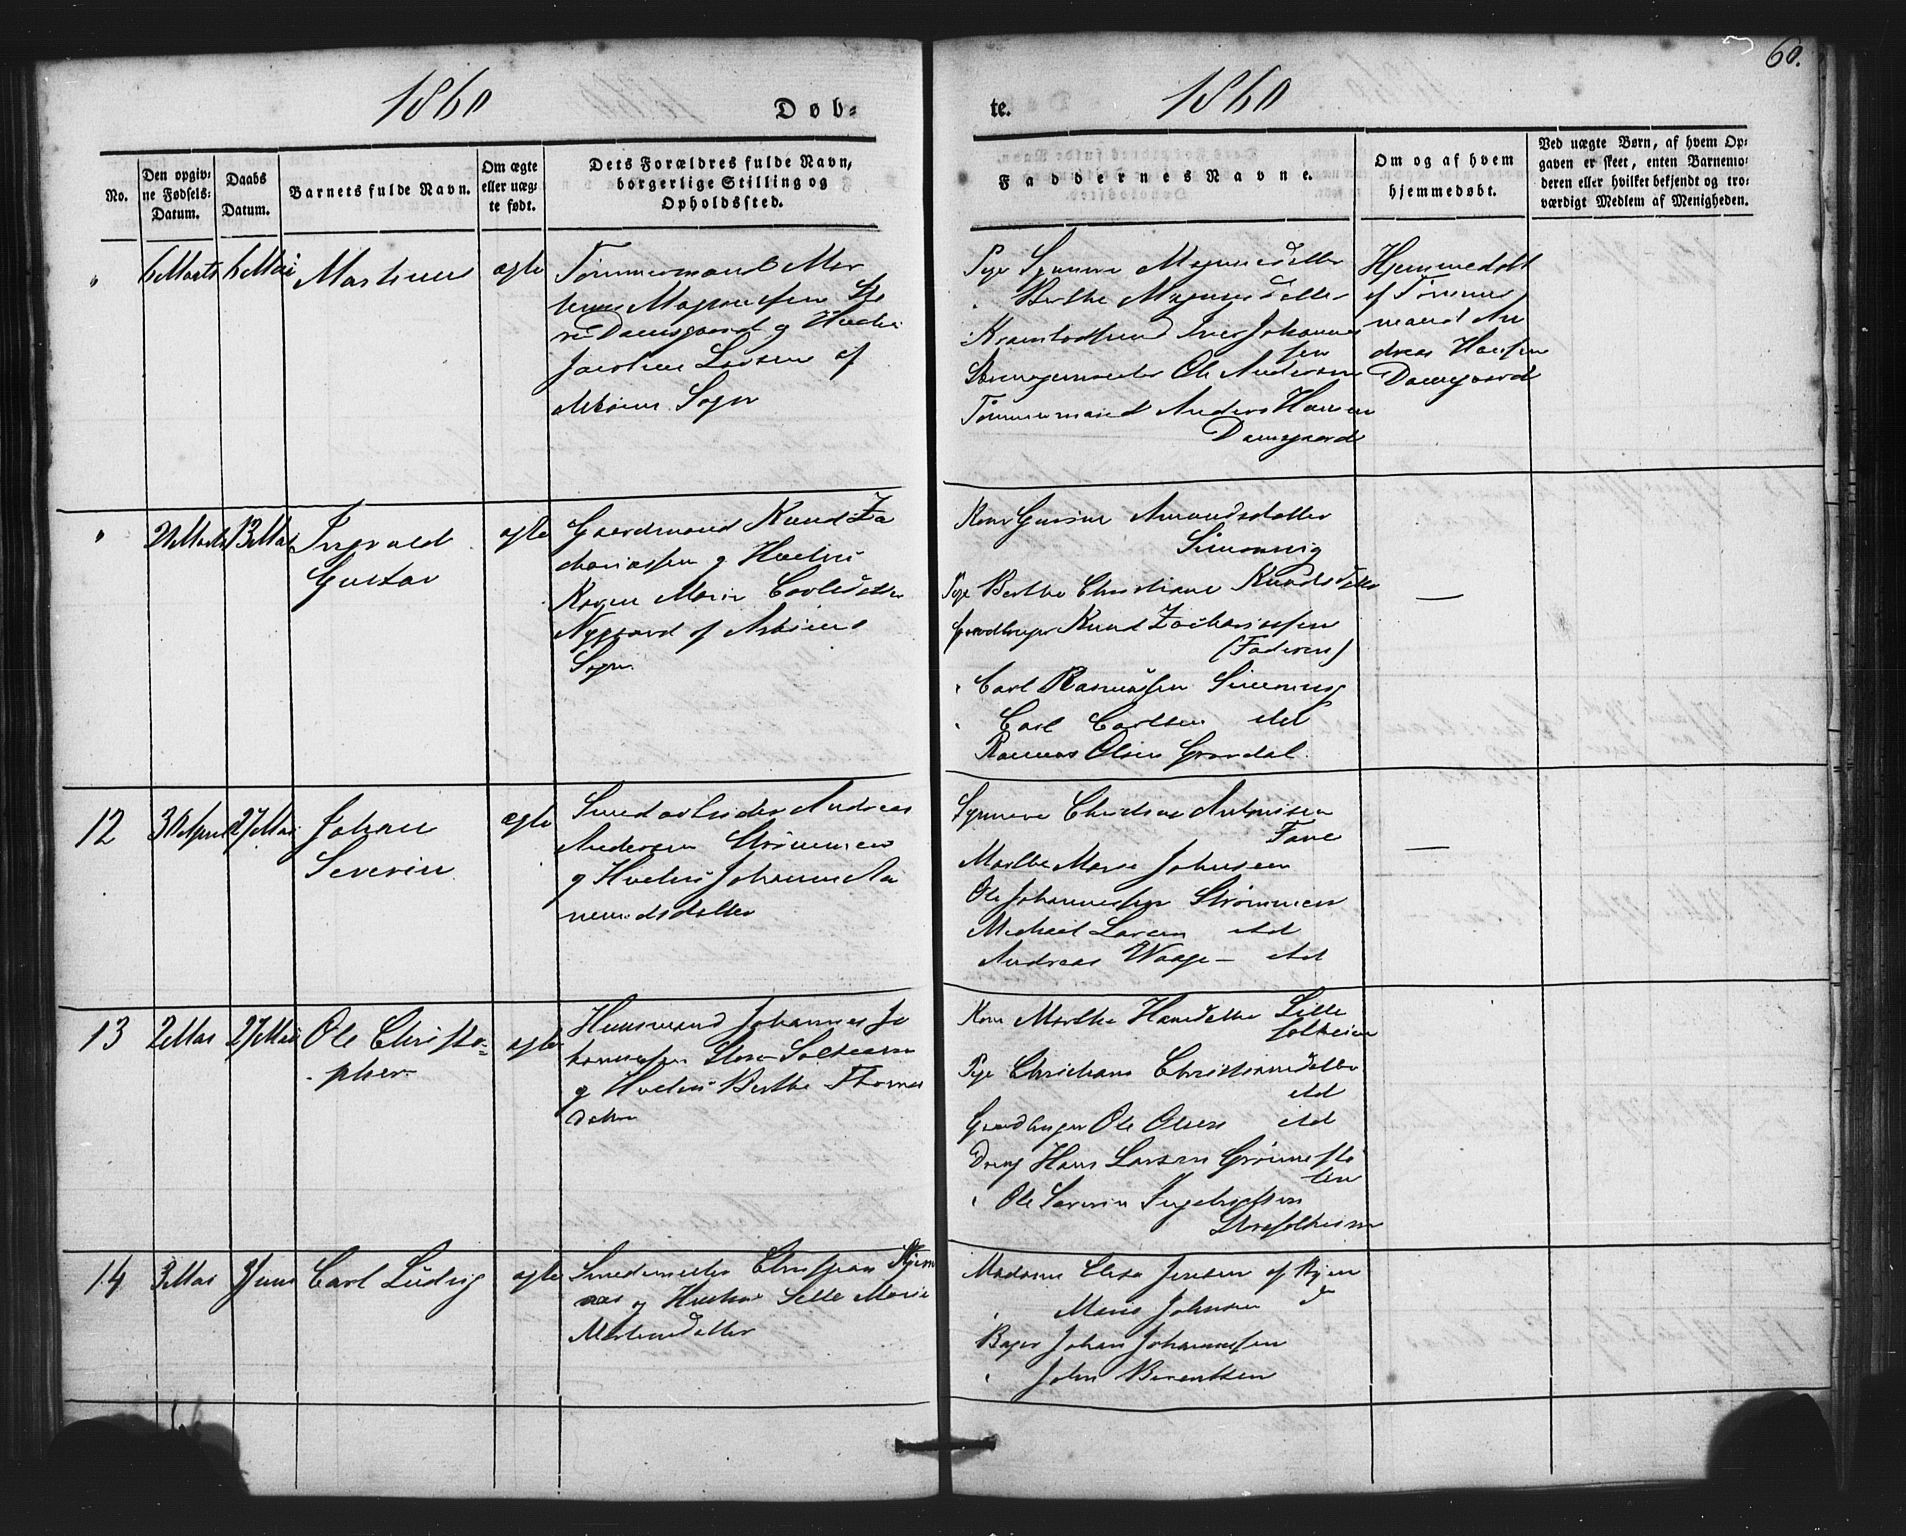 1860
Døb-
te.
1860
60.
No.
Den opgiv-
ne Fødsels-
Datum.
Daabs
Datum.
Barnets fulde Navn.
Om ægte
eller uæg-
te født.
Dets Forældres fulde Navn,
borgerlige Stilling og
Opholdssted.
Faddernes Navne.
Om og af hvem
hjemmedøbt.
Ved uægte Børn, af hvem Op-
gaven er skeet, enten Barnemo-
deren eller hvilket bekjendt og tro-
værdigt Medlem af Menigheden.
"
6 Marts
6 Mai
ægte
Tømmermand Mar
Damsgaard og Hustru
Larsen af
Sogn
Pige Synneve
Berthe
Iver Johannes
sen
Ole Andersen
Tømmermand Anders Hansen
Damsgaard
Hjemmedøbt
af Tømmer
mand An
dreas Hansen
Damsgaard
"
13 Mai
Ingvald
Gustav
ægte
Gaardmand Knud Za
chariassen og Hustru
Karen Marie Carlsdatter
Nygaard af Askøens
Sogn
Kone Gurine Amundsdatter
Simonsvig
Pige Berthe Christiane Knudsdatter
Gaardbruger Knud Zachariassen
(Faderen)
" Carl Rasmussen Simonsvig
" Carl Carlsen std
Rasmus Olsen Gravdal
12
30 April
27 Mai
Johan
Severin
ægte
Smedarbeider Andreas
Andersen Strømmen
og Hustru Johanne Aa
mundsdatter
Synneve Christine Antonisen
Marthe Marie Johnsen
Ole Johannessen Strømmen
Michael Larsen std
Andreas Waage - std
13
2 Mai
27 Mai
Ole Christo-
pher
ægte
Huusmand Johannes Jo
hannessen Store Solheim
og Hustru Berthe Thomas
datter
Kone Marthe Hansdatter Lille
solheim
Pige Christiane Christiansdatter
std
Gaardbruger Ole Olsen std
Dreng Hans Larsen
" Ole Severin Ingebrigtsen
Storesolheim
14
3 Mai
3 Juni
Carl Ludvig
ægte
Smedemester Christian
og Hustru Sille Marie
Mortensdatter
Madame Elisa Jensen af Byen
" Marie Johnsen do
Bager Johan Johannessen
" John Berentsen